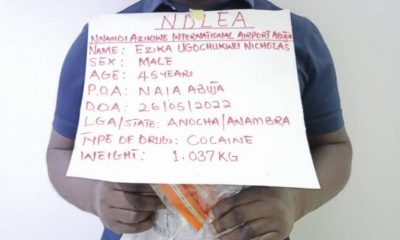 NDLEA
NNAMDI AZIKIWE INTERNATIONAL AIRPORT ABUJA
NAME: EZIKA UGOCHUKWU NICHOLAS
SEX: MALE
AGE: 45 YEARS
P.O.A: NAIA ABUJA
D.O.A: 26/05/2022
LGA/STATE: ANOCHA/ANAMBRA
TYPE OF DRUG: COCAINE
WEIGHT: 1.037KG